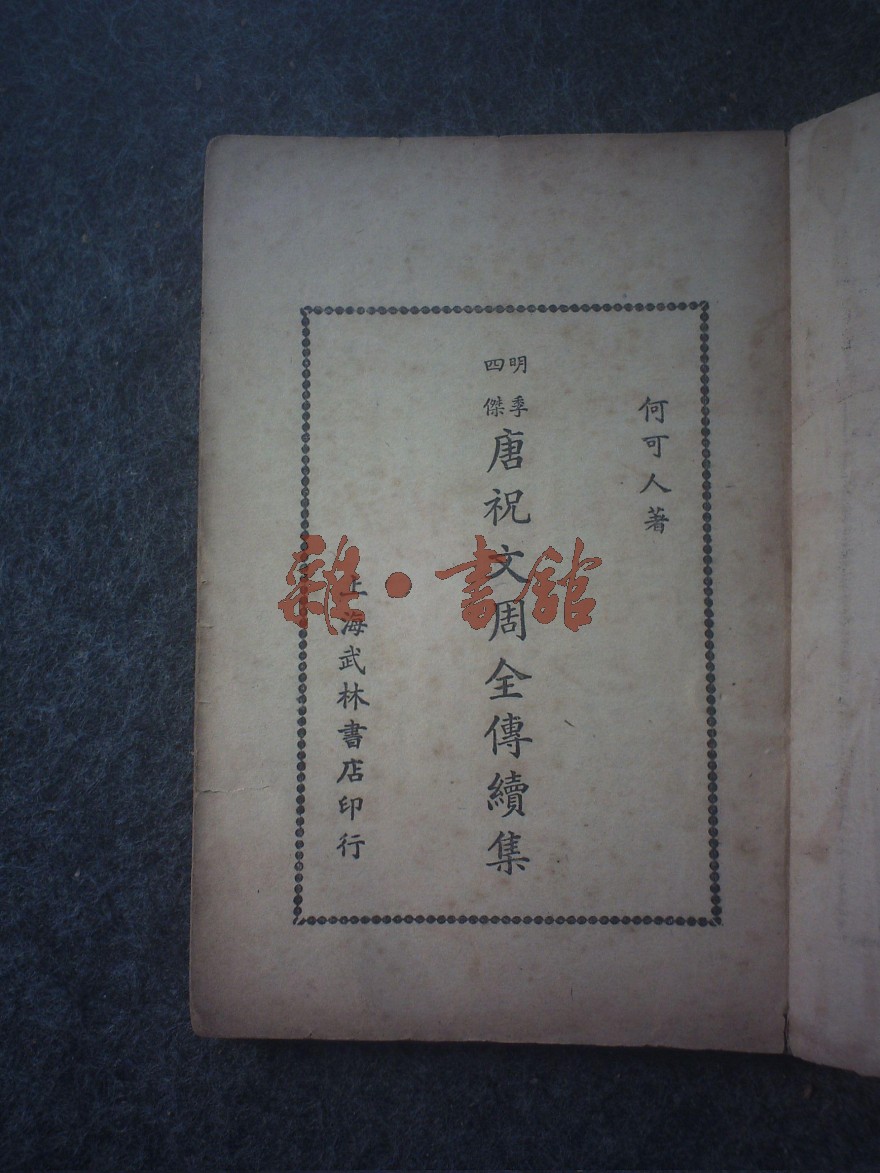 何可人著
明季
四傑
唐祝文周全傳續集
上海武林書店印行
雜·書館